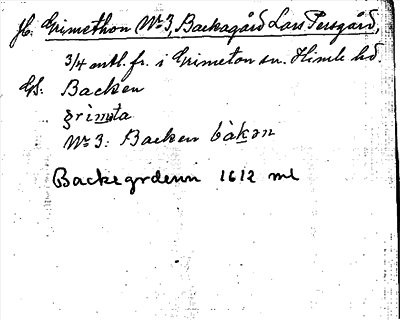 Jb. Grimethon No 3, Backagård Lars Persgård,
3/4 mtl. fr. i Grimeton sn. Himle hd.
Gs. Backen
grimta
No 3: Backen bàkən
Backegrdenn 1612 ml